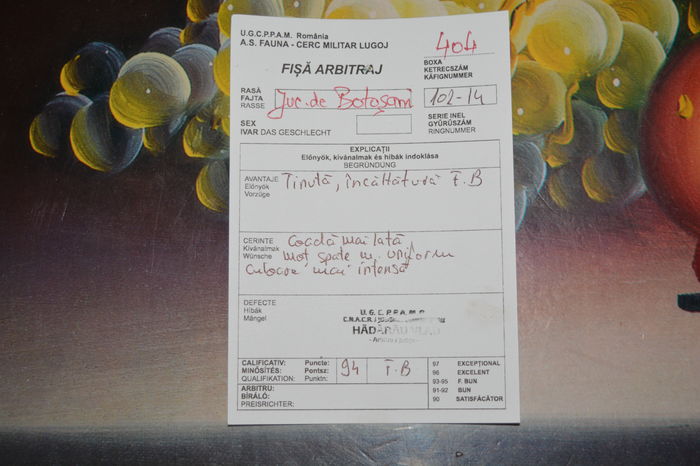 U.G.C.P.P.A.M. România
A.S. FAUNA - CERC MILITAR LUGOJ
404
FIȘĂ ARBITRAJ
BOXA
KETRECSZÁM
KÄFIGNUMMER
RASĂ
FAJTA
RASSE
Juc. de Botoșani
102-14
SEX
IVAR DAS GESCHLECHT
SERIE INEL
GYŰRŰSZÁM
RINGNUMMER
EXPLICAȚII
Előnyök, kívánalmak és hibák indoklása
BEGRÜNDUNG
AVANTAJE
Előnyök
Vorzüge
Ținută, încălțătură F.B
CERINTE
Kívánalmak
Wünsche
Coadă mai lată,
moț spate m. uniform
Culoare mai intensă
DEFECTE
Hibák
Mängel
U.G.C.P.P.A.M.R
HĂDĂRĂU VLAD
CALIFICATIV: Puncte:
MINŐSÍTÉS: Pontsz:
QUALIFIKATION: Punktn:
94 F.B
97 EXCEPȚIONAL
96 EXCELENT
93-95 F. BUN
91-92 BUN
90 SATISFĂCĂTOR
ARBITRU:
BÍRÁLÓ:
PREISRICHTER: